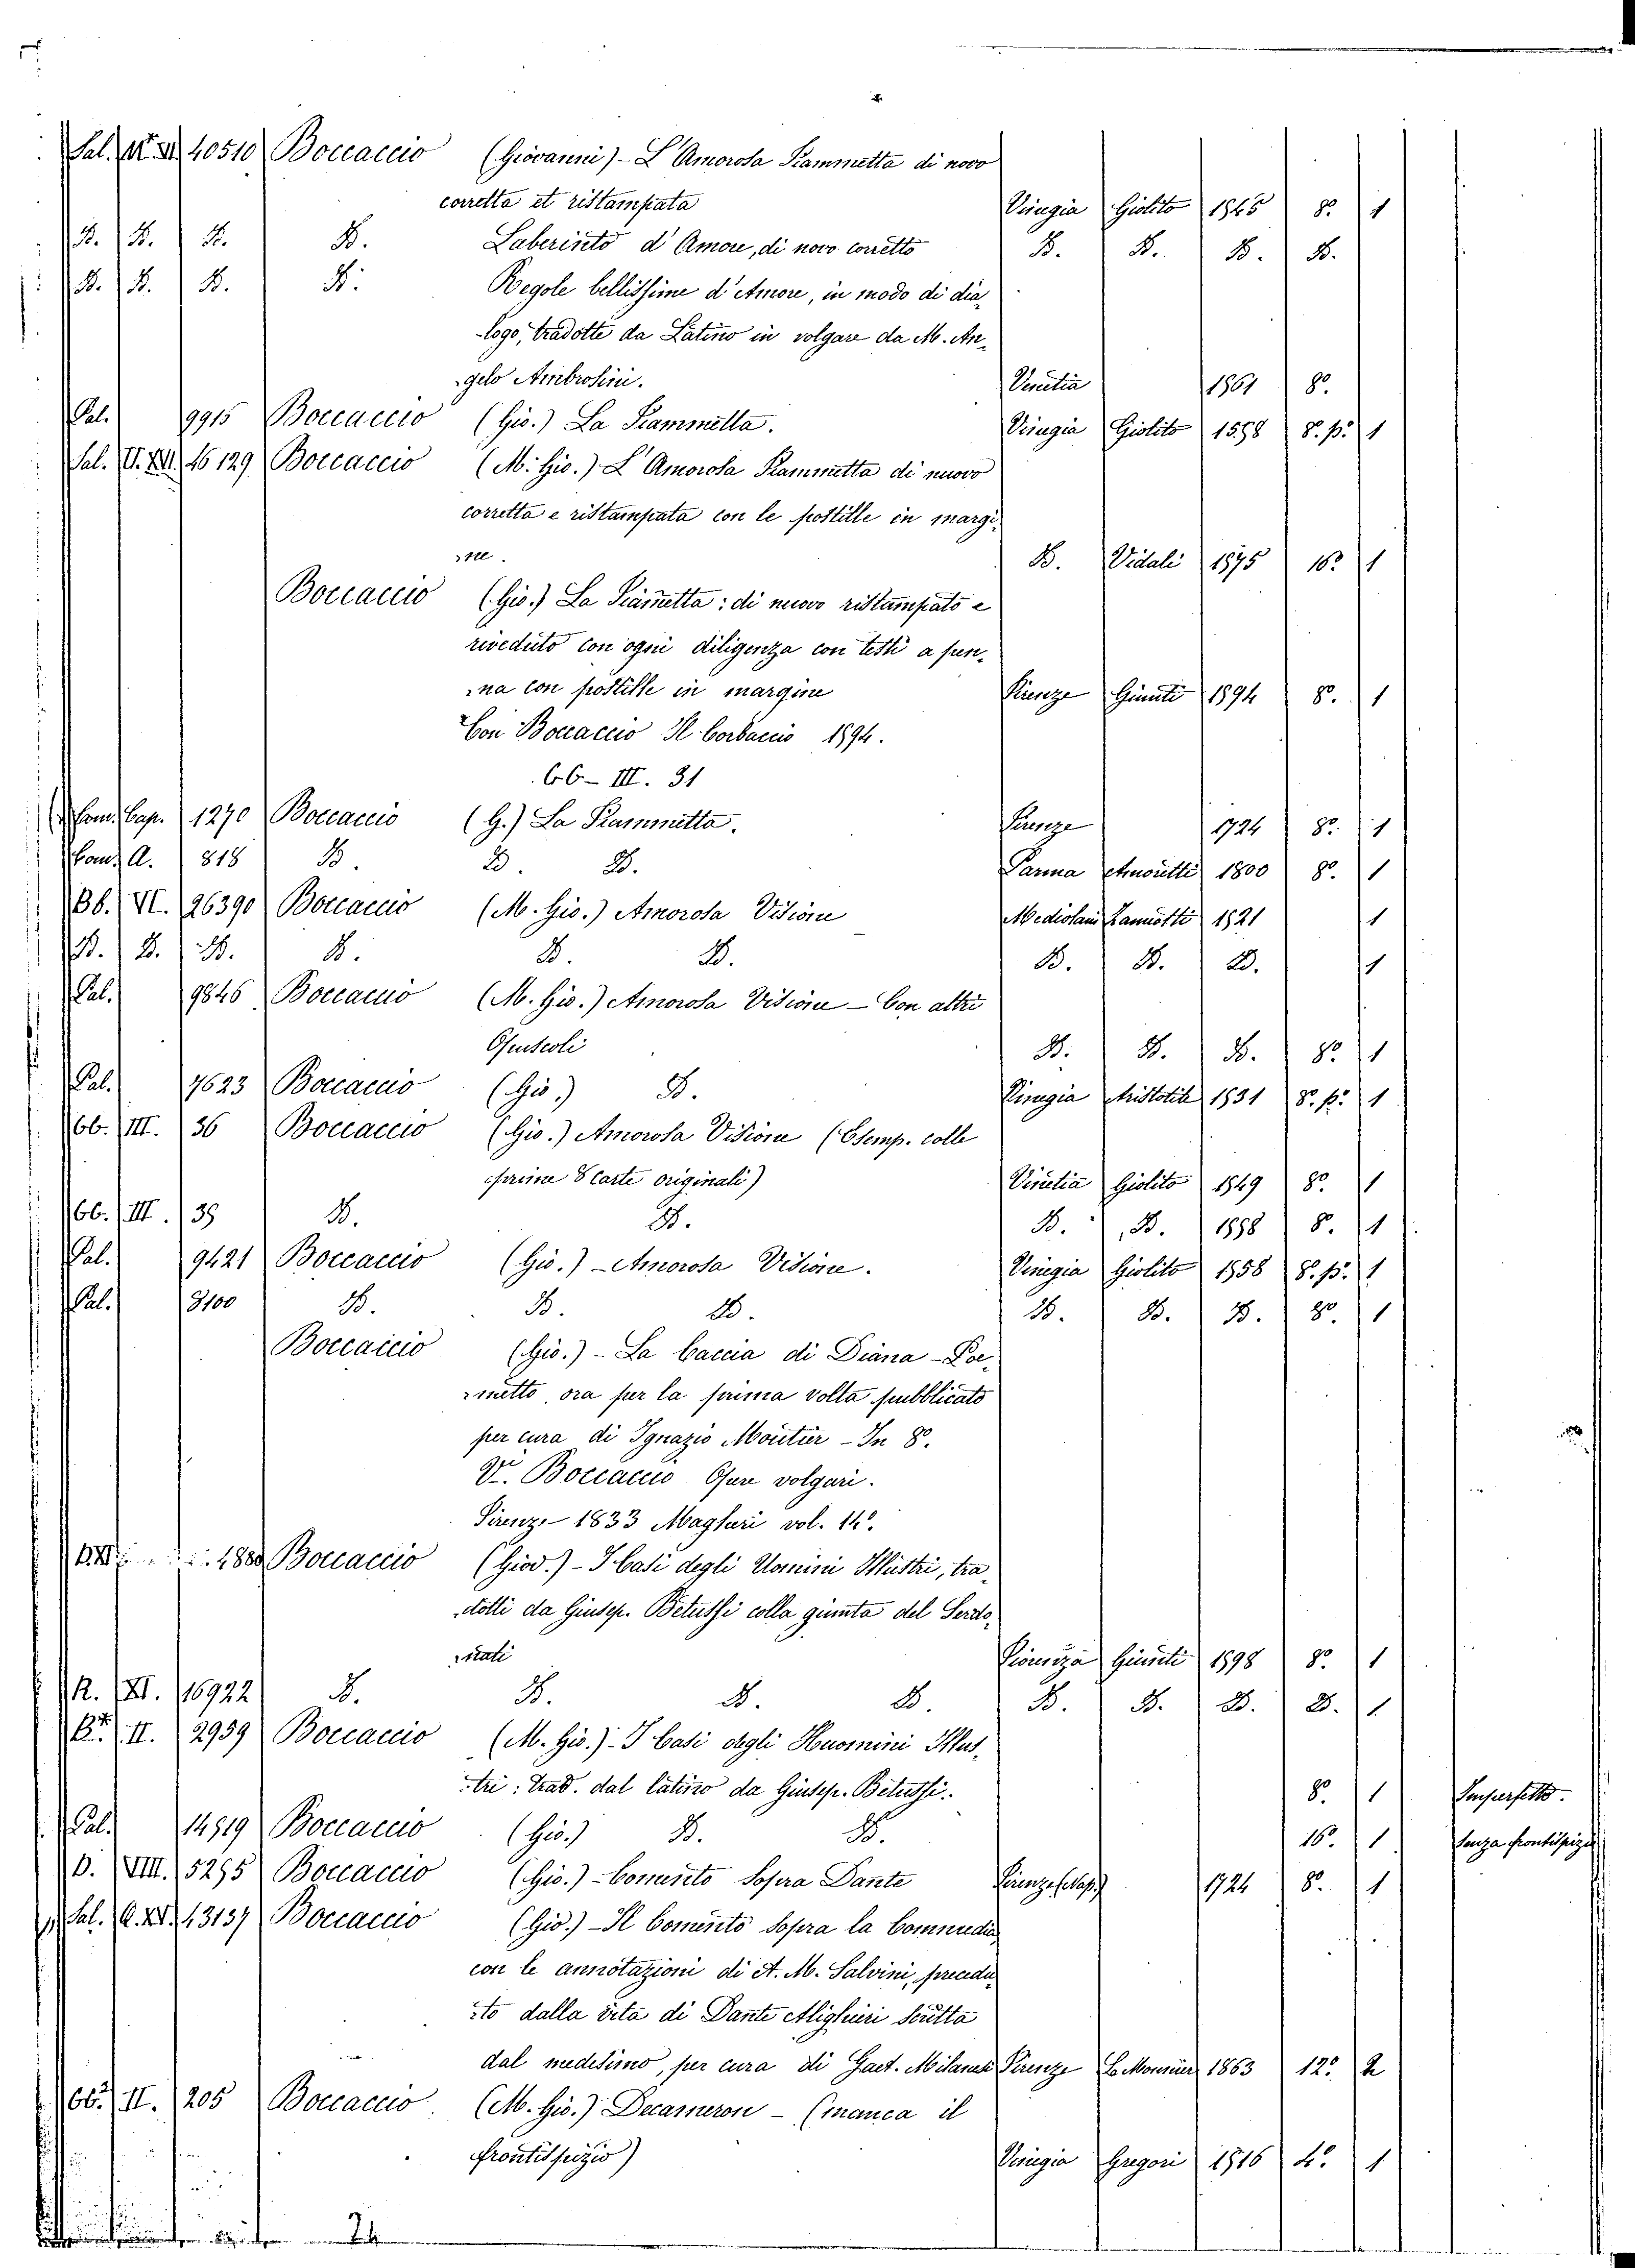 Sal. 40510 Boccaccio (Giovanni) - L'Amorosa Fiammetta di novo
corretta et ristampata Vinegia Giolito 1545 8º 1
D. D. D. D. Laberinto d'Amore, di novo corretto D. D. D. D.
D. D. D. D. Regole bellissime d'Amore, in modo di dia
logo, tradotte da Latino in volgare da M. An
gelo Ambrosini. Venetia 1561 8º
Pal. 9915 Boccaccio (Gio.) La Fiammetta. Vinegia Giolito 1558 8º p.º 1
Sal. 16129 Boccaccio (M. Gio.) L'Amorosa Fiammetta di nuovo
corretta e ristampata con le postille in margi
ne. D. Vidali 1575 16º 1
Boccaccio (Gio.) La Fiammetta: di nuovo ristampato e
riveduto con ogni diligenza con testi a pen
na con postille in margine Firenze Giunti 1594 8º 1
Con Boccaccio Il Corbaccio 1594.
66 - III. 31
Com. Cap. 1270 Boccaccio (G.) La Fiammetta. Firenze 1724 8º 1
Com. A. 818 D. D. D. Parma Amoretti 1800 8º 1
Bb. VI. 26390 Boccaccio (M. Gio.) Amorosa Visione Mediolani Zannotti 1521 1
D. D. D. D. D. D. D. D. D. 1
Pal. 9846 Boccaccio (M. Gio.) Amorosa Visione - Con altri
Opuscoli D. D. D. 8º 1
Pal. 7623 Boccaccio (Gio.) D. Vinegia Aristotile 1531 8º p.º 1
66. III. 36 Boccaccio (Gio.) Amorosa Visione (Esemp. colle
prime 8 carte originali) Vinetia Giolito 1549 8º 1
66. III. 35 D. D. D. D. 1558 8º 1
Pal. 9421 Boccaccio (Gio.) - Amorosa Visione. Vinegia Giolito 1558 8º p.º 1
Pal. 3100 D. D. D. D. D. D. 8º 1
Boccaccio (Gio.) - La Caccia di Diana - Poe
metto, ora per la prima volta pubblicato
per cura di Ignazio Moutier - In 8º.
V. Boccaccio Opere volgari.
Firenze 1833 Magheri vol. 14º.
Boccaccio (Giov.) - I Casi degli Uomini Illustri, tra
dotti da Giusep. Betussi colla giunta del Serdo
nati Fiorenza Giunti 1598 8º 1
R. XI. 16922 D. D. D. D. D. D. D. D. 1
II. 2959 Boccaccio (M. Gio.) - I Casi degli Huomini Illus
tri: trad. dal latino da Giusep. Betussi. 8º 1 Imperfetto.
Pal. 14519 Boccaccio (Gio.) D. D. 16º 1 Senza frontispizio
D. VIII. 5295 Boccaccio (Gio.) - Comento sopra Dante Firenze (Nap.) 1724 8º 1
Sal. 13137 Boccaccio (Gio.) - Il Comento sopra la Commedia
con le annotazioni di A. M. Salvini, precedu
to dalla vita di Dante Alighieri scritta
dal medesimo, per cura di Gaet. Milanesi Firenze Le Monnier 1863 12º 2
66. II. 205 Boccaccio (M. Gio.) Decameron - (manca il
frontispizio) Vinegia Gregori 1516 4º 1
24